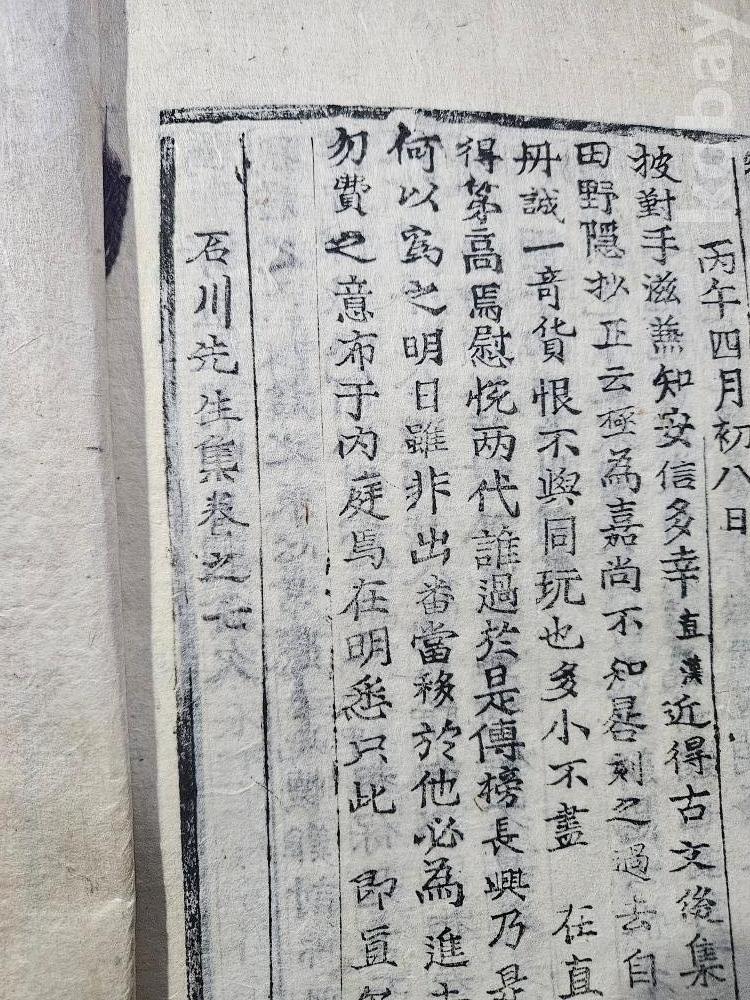 丙午四月初八日
披對手滋燕知安信多幸直漢近得古文後集
田野隱抄正云極為嘉尚不知晷刻之過去自
冊誠一奇貨恨不與同玩也多小不盡 在直
得第高焉慰悅两代誰過於是傳榜長興乃是
何以寫之明日雖非出番當移於他必為進
勿費之意布于內庭焉在明悉只此 即直
石川先生集卷之七
kobay